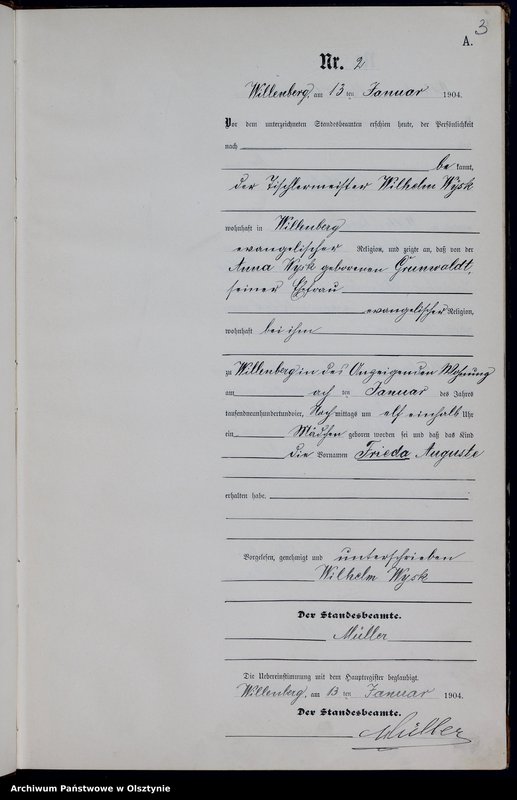 3
A.
Nr. 2
Willenberg, am 13 ten Januar 1904.
Vor dem unterzeichneten Standesbeamten erschien heute, der Persönlichkeit
nach
be kannt,
der Tischlermeister Wilhelm Wysk
wohnhaft in Willenberg
evangelischer Religion, und zeigte an, daß von der
Anna Wysk geborenen Grunwaldt,
seiner Ehefrau
evangelischer Religion,
wohnhaft bei ihm
zu Willenberg in des Anzeigenden Wohnung
am ach ten Januar des Jahres
tausendneunhundertundvier, Nachmittags um elf einhalb Uhr
ein Mädchen geboren worden sei und daß das Kind
die Vornamen Frieda Auguste
erhalten habe.
Vorgelesen, genehmigt und unterschrieben
Wilhelm Wysk
Der Standesbeamte.
Müller
Die Uebereinstimmung mit dem Hauptregister beglaubigt.
Willenberg, am 13 ten Januar 1904.
Der Standesbeamte.
Müller
Archiwum Państwowe w Olsztynie